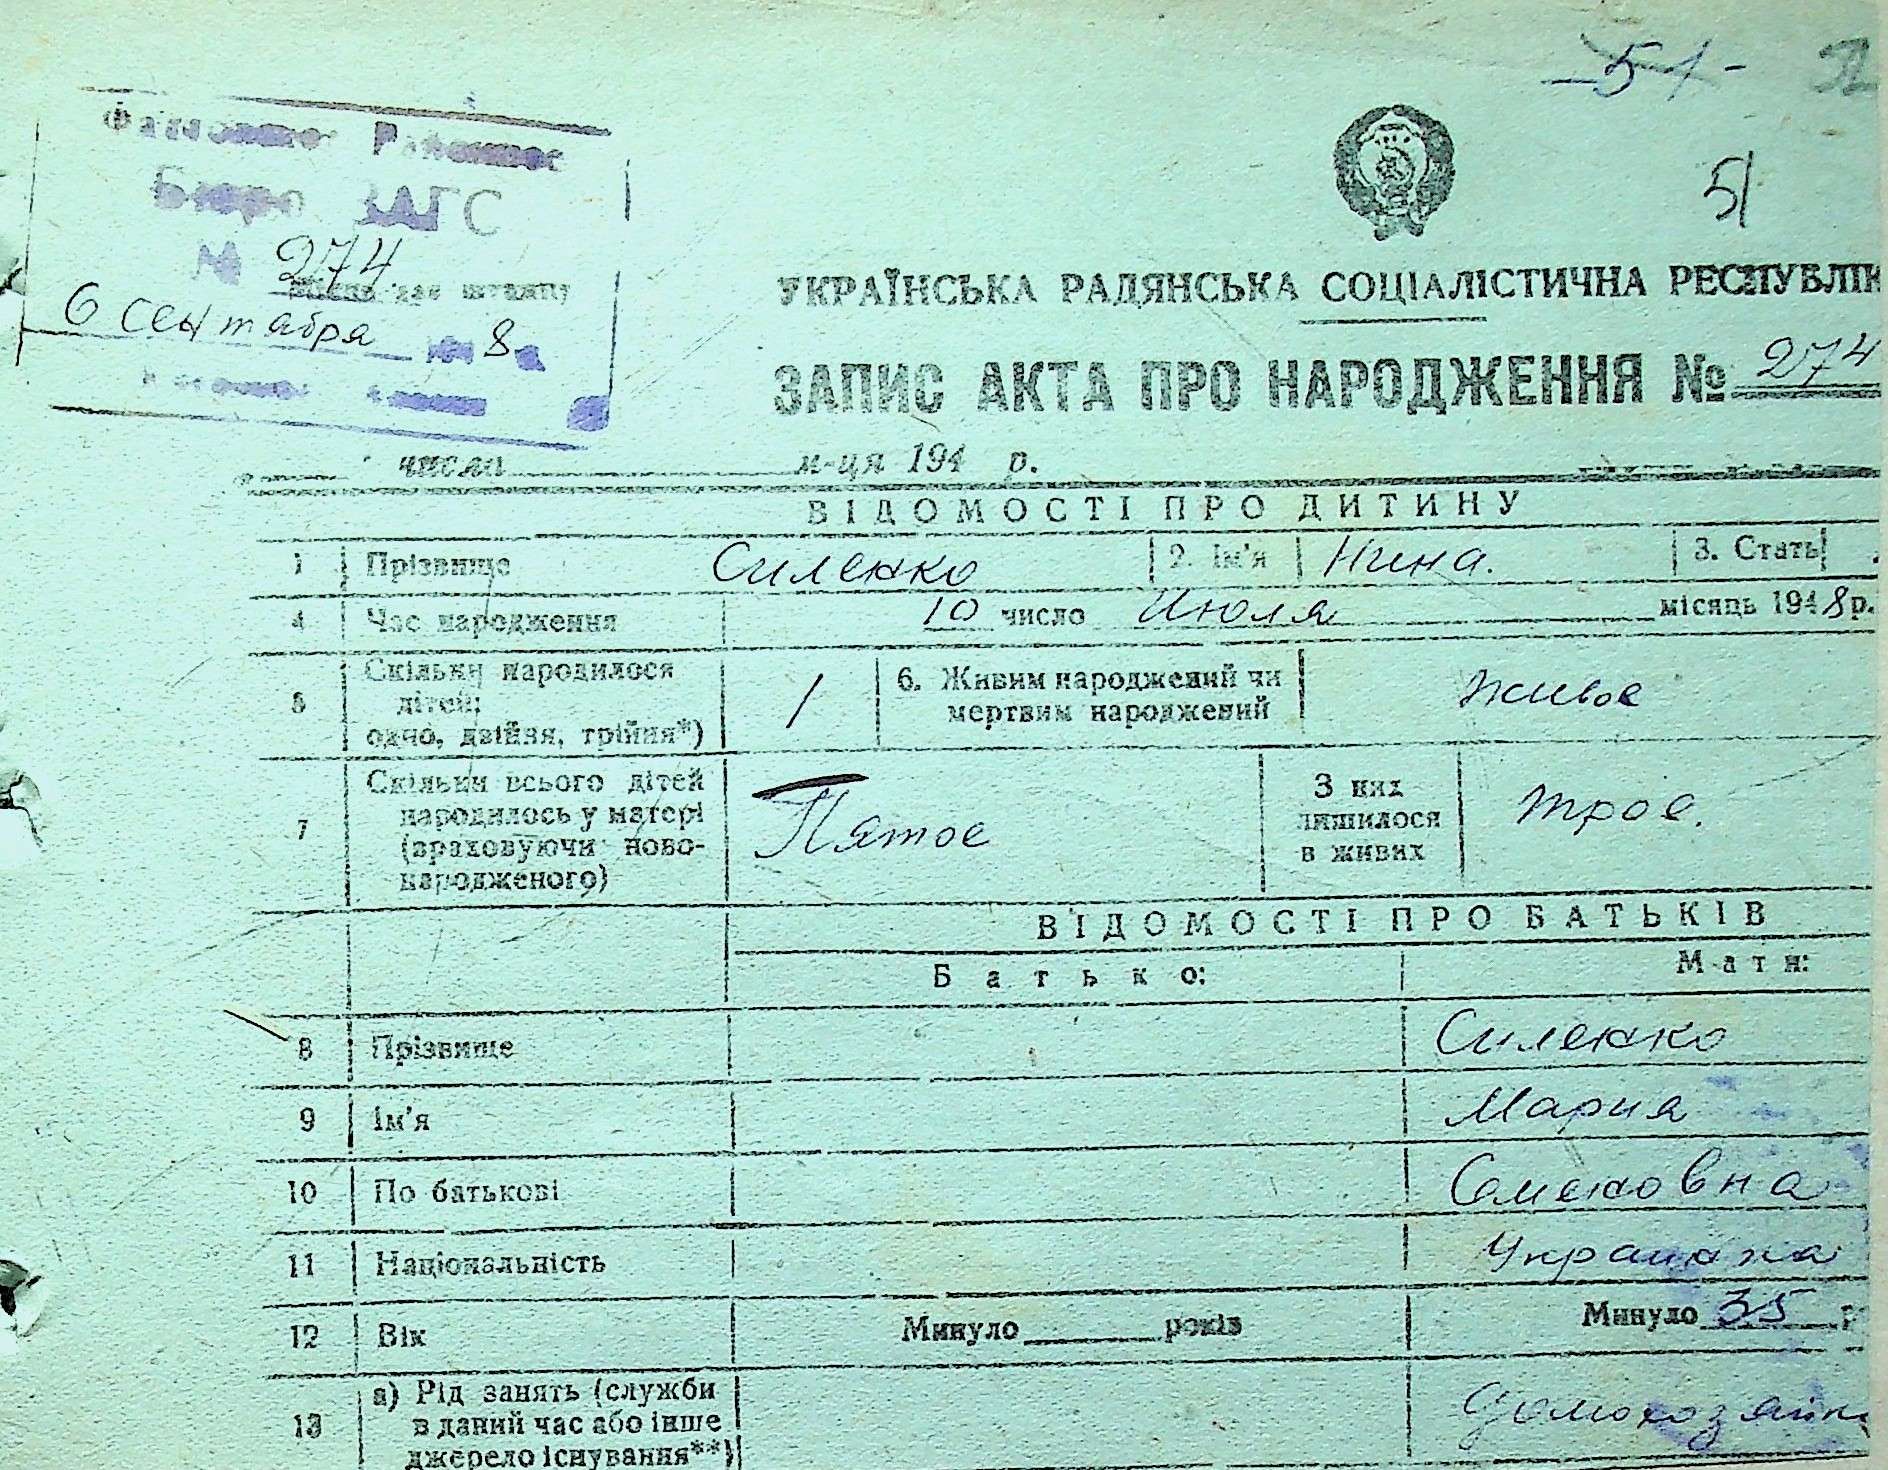 51
51
Бюро ЗАГС
№ 274
6 сентября 1948
УКРАЇНСЬКА РАДЯНСЬКА СОЦІАЛІСТИЧНА РЕСПУБЛІК
ЗАПИС АКТА ПРО НАРОДЖЕННЯ № 274
числа м-ця 194 р.
ВІДОМОСТІ ПРО ДИТИНУ
1 Прізвище Силенко 2. Ім'я Нина. 3. Стать
4 Час народження 10 число Июля місяць 1948 р.
5 Скільки народилося
дітей:
одно, двійня, трійня*) 1
6. Живим народжений чи
мертвим народжений живое
7 Скільки всього дітей
народилось у матері
(враховуючи ново-
народженого) Пятое
З них
лишилося
в живих трое.
ВІДОМОСТІ ПРО БАТЬКІВ
Батько: Мати:
8 Прізвище Силенко
9 Ім'я Мария
10 По батькові Семеновна
11 Національність Украинка
12 Вік Минуло років Минуло 35 р
13 а) Рід занять (служби
в даний час або інше
джерело існування**) домохозяйк